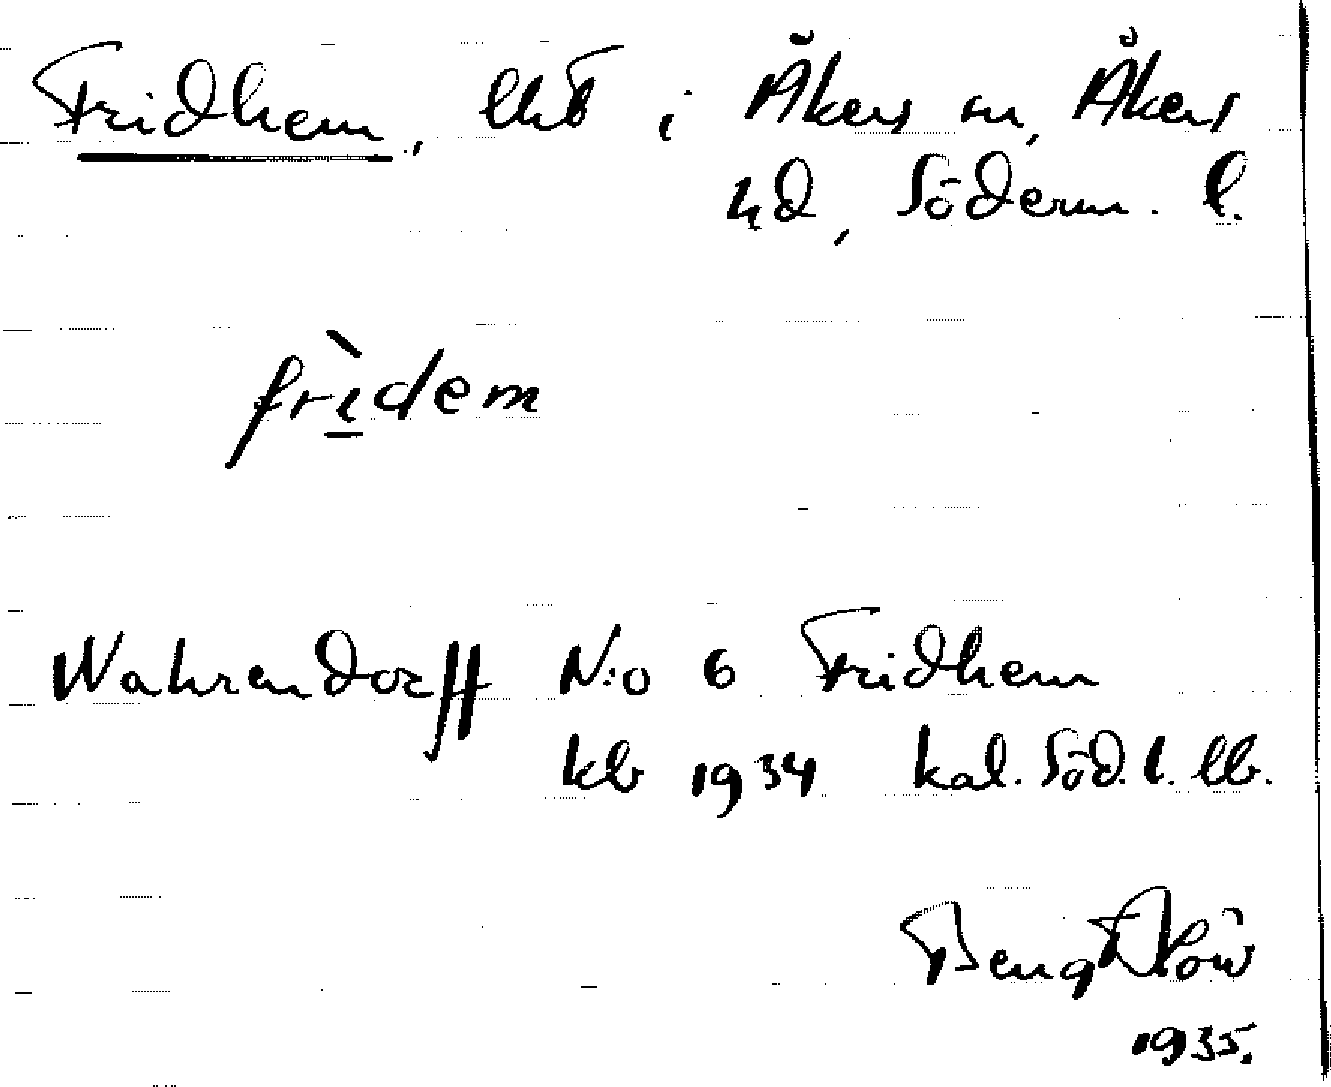 Fridhem, lht i Åkers sn, Åkers
hd, Söderm. l.
frìdem
Wahrendorff N:o 6 Fridhem
kb 1934 kal. Söd. l. lb.
Bengt
1935.